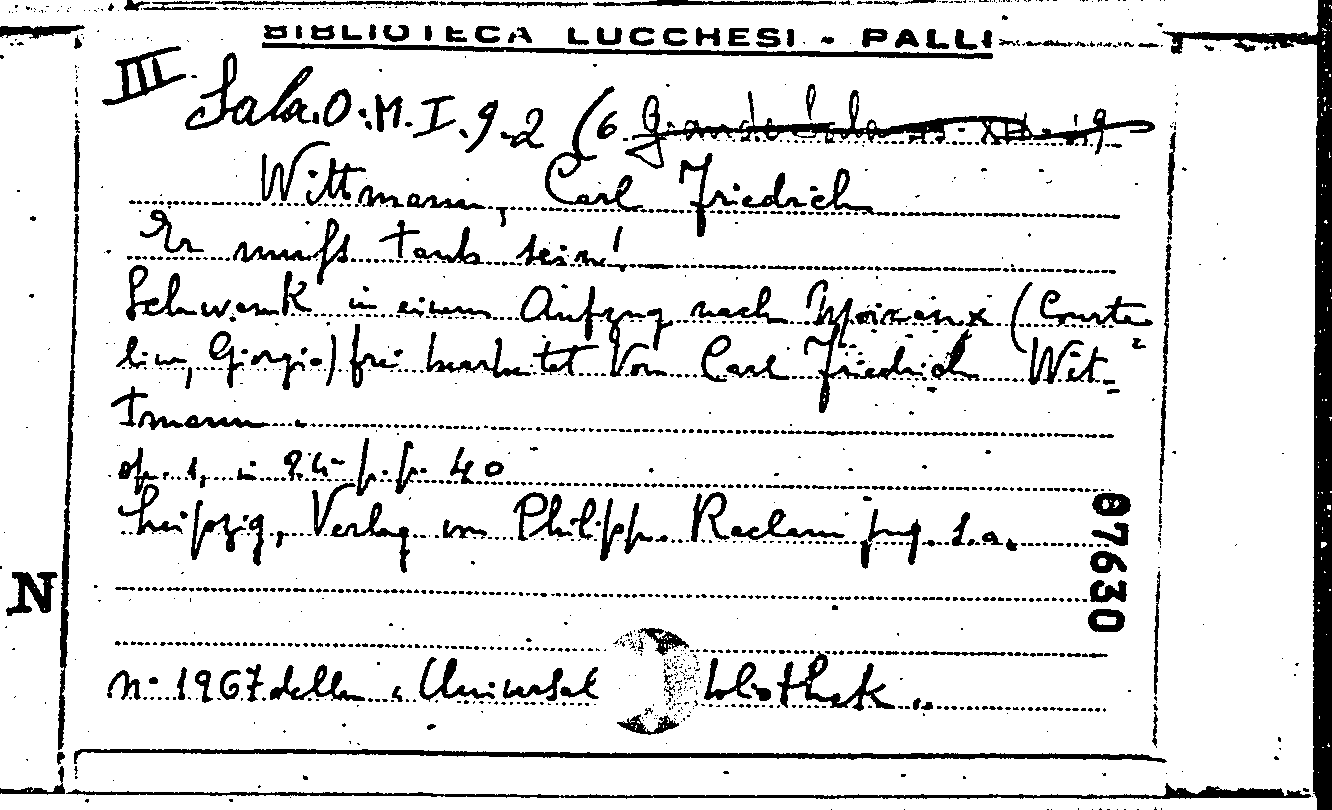 BIBLIOTECA LUCCHESI - PALLI
III Sala.O.M.I.9-2 (6
Wittmann, Carl Friedrich
Er muß taub sein!
Schwank in einem Aufzug nach Moineaux (Courte=
line, Giorgio) frei bearbeitet von Carl Friedrich Wit=
tmann.
op. 1, in 24° p.p. 40
Leipzig, Verlag von Philipp. Reclam jug. s.a.
87630
N
n. 1967 della "Universal bliothek"